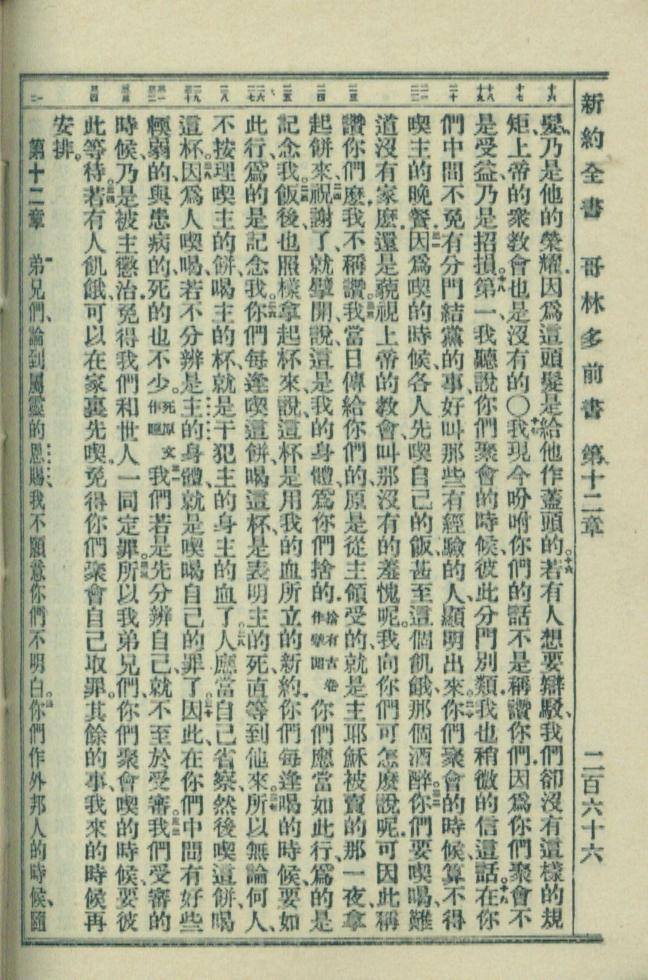 新約全書 哥林多前書 第十二章 二百六十六
髮、乃是他的榮耀.因爲這頭髮是給他作蓋頭的.若有人想要辯駁、我們卻沒有這樣的規
矩、上帝的衆教會也是沒有的○我現今吩咐你們的話、不是稱讚你們、因爲你們聚會不
是受益、乃是招損.第一、我聽說你們聚會的時候、彼此分門別類.我也稍微的信這話.在你
們中間不免有分門結黨的事、好叫那些有經驗的人、顯明出來.你們聚會的時候、算不得
喫主的晚餐.因爲喫的時候、各人先喫自己的飯、甚至這個飢餓、那個酒醉.你們要喫喝、難
道沒有家麼.還是藐視上帝的教會、叫那沒有的羞愧呢.我向你們可怎麽說呢.可因此稱
讚你們麼.我不稱讚.我當日傳給你們的、原是從主領受的、就是主耶穌被賣的那一夜、拿
起餅來、祝謝了、就擘開、說、這是我的身體、爲你們捨的.捨有古卷作擘開 你們應當如此行、爲的是
記念我.飯後、也照樣拿起杯來、說、這杯是用我的血所立的新約.你們每逢喝的時候、要如
此行、爲的是記念我.你們每逢喫這餅、喝這杯、是表明主的死、直等到他來.所以無論何人、
不按理喫主的餅、喝主的杯、就是干犯主的身主的血了.人應當自己省察、然後喫這餅、喝
這杯.因爲人喫喝、若不分辨是主的身體、就是喫喝自己的罪了.因此在你們中間有好些
輭弱的、與患病的、死的也不少.死原文作睡 我們若是先分辨自己、就不至於受審.我們受審的
時候、乃是被主懲治、免得我們和世人一同定罪.所以我弟兄們、你們聚會喫的時候、要彼
此等待.若有人飢餓、可以在家裏先喫.免得你們聚會、自己取罪.其餘的事、我來的時候再
安排.
第十二章 弟兄們、論到屬靈的恩賜、我不願意你們不明白.你們作外邦人的時候、隨